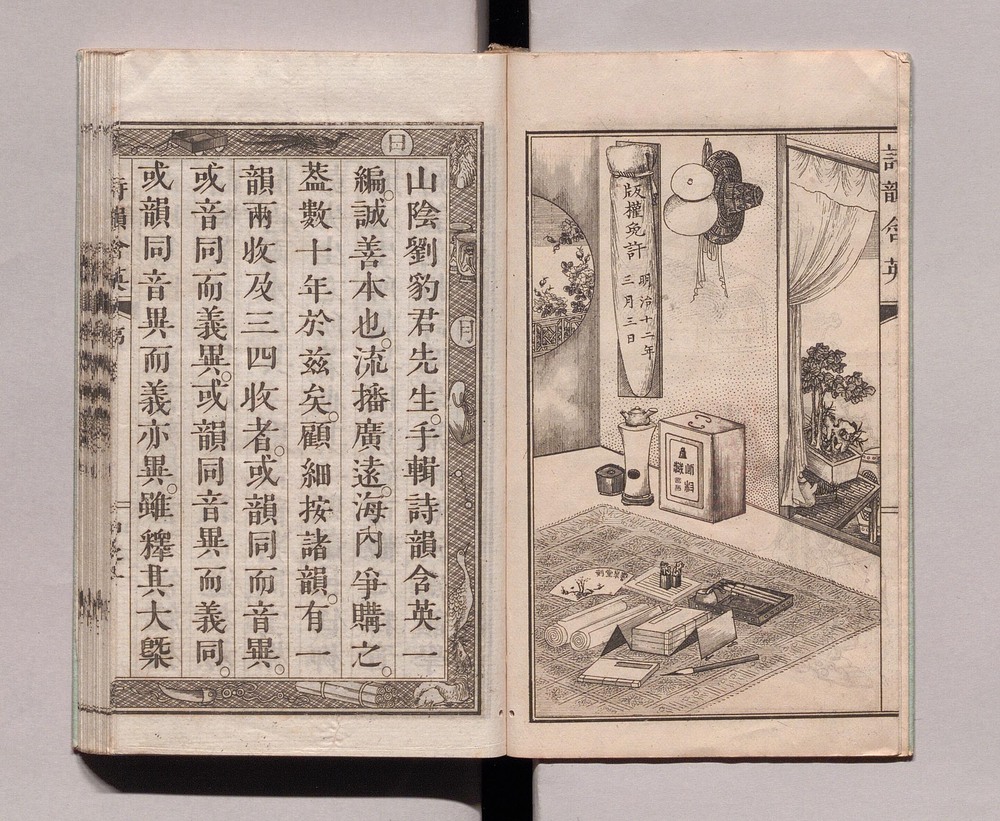 詩韻含英
版權免許
明治十二年
三月三日
山陰劉豹君先生。手輯詩韻含英一
編。誠善本也。流播廣遠。海內爭購之。
葢數十年於茲矣。顧細按諸韻。有一
韻兩收及三四收者。或韻同而音異。
或音同而義異。或韻同音異而義同。
或韻同音異而義亦異。雖釋其大槩
日
月